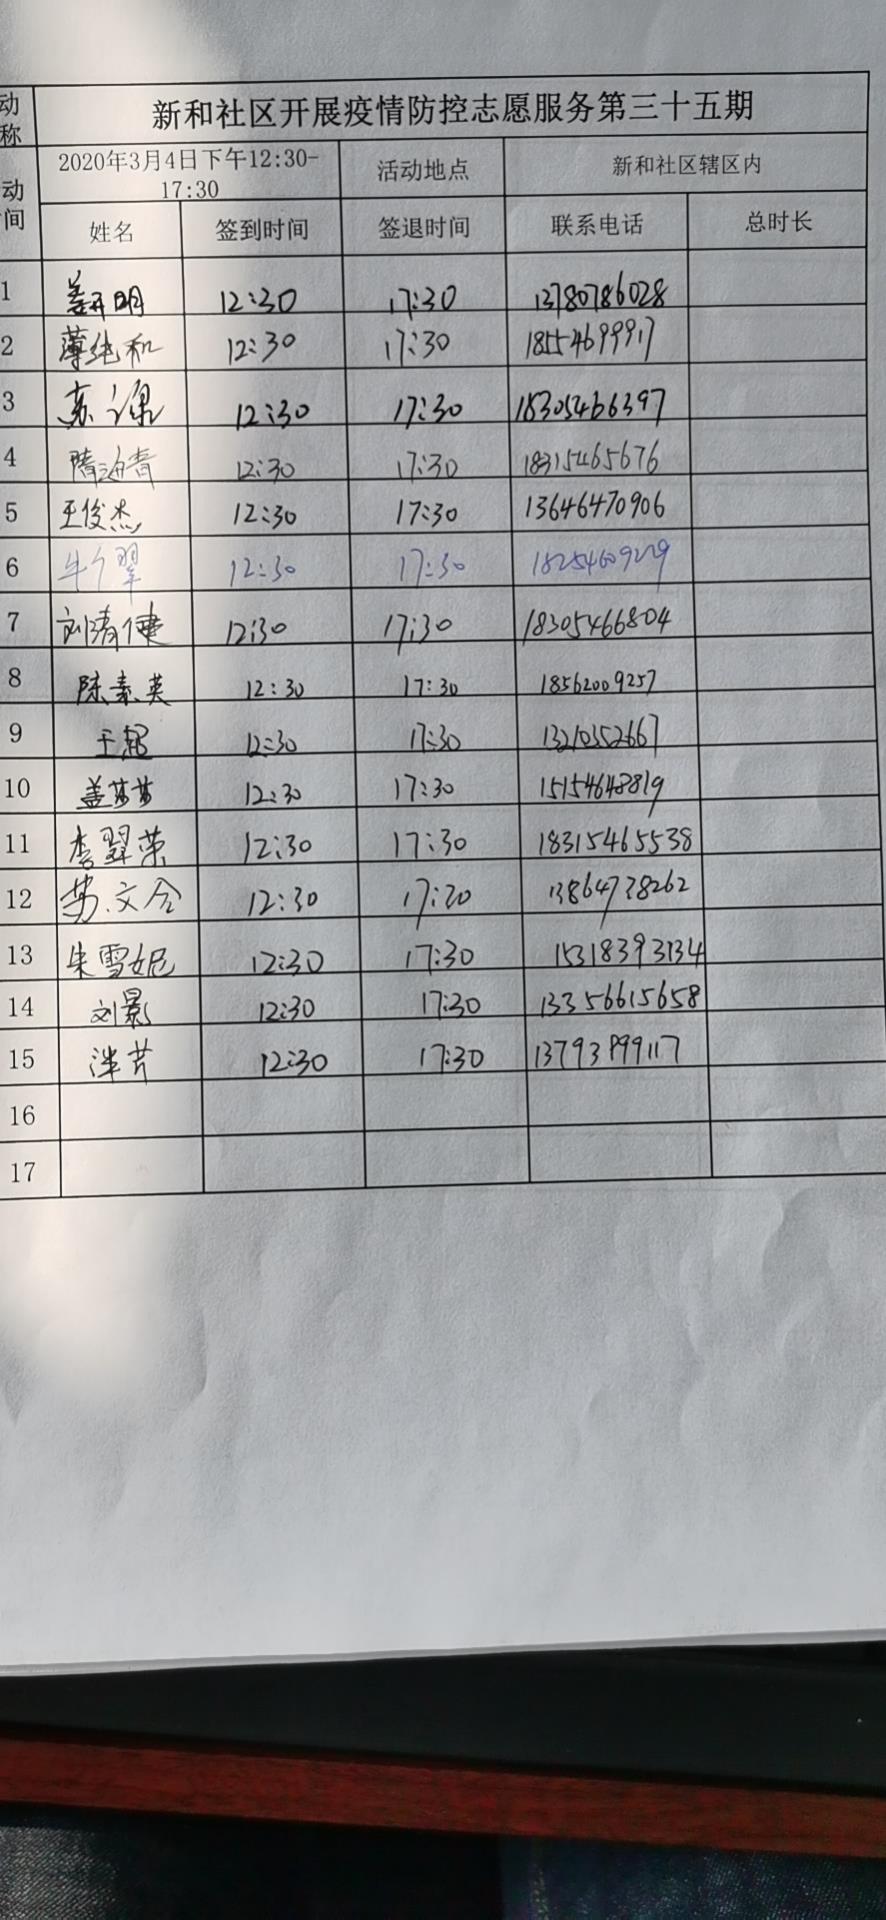 动 新和社区开展疫情防控志愿服务第三十五期
称
动 2020年3月4日下午12:30- 活动地点 新和社区辖区内
间 17:30
姓名 签到时间 签退时间 联系电话 总时长
1 姜开明 12:30 17:30 13780786028
2 薄纯和 12:30 17:30 18554699917
3 苏 12:30 17:30 18305466397
4 隋海青 12:30 17:30 18315465676
5 王俊杰 12:30 17:30 13646470906
6 牛翠 12:30 17:30 18254609229
7 刘清健 12:30 17:30 18305466804
8 陈素英 12:30 17:30 18562009257
9 王超 12:30 17:30 13210352667
10 盖苗苗 12:30 17:30 15154648819
11 李翠荣 12:30 17:30 18315465538
12 苏文会 12:30 17:30 13864738262
13 朱雪妮 12:30 17:30 15318393134
14 刘影 12:30 17:30 13356615658
15 芹 12:30 17:30 13793899117
16
17